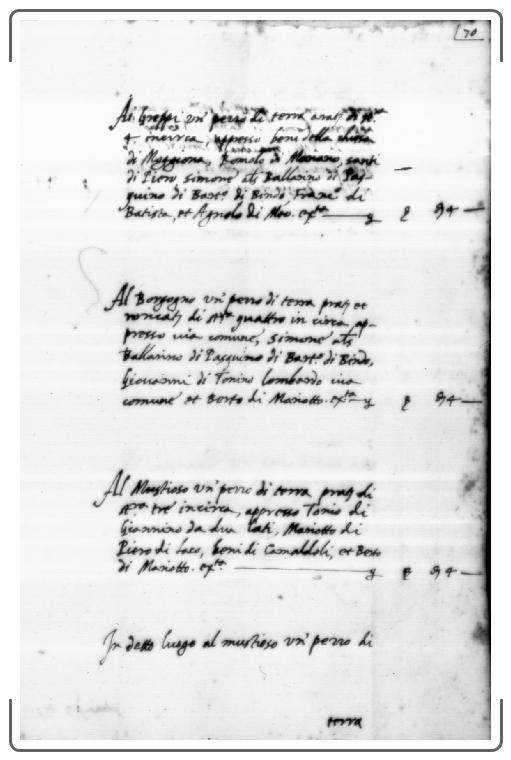 70
Ai Greppi un' pezzo di terra arat; di st.ra
4 incirca, appresso beni della chiesa
di Moggiona, Romolo di Mariano, santi
di Piero, simone als Ballarino di Pas-
quino di Bart.o di Bindo, Franc.o di
Batista, et Agnolo di Meo. ex.ta
Al Borgogno un' pezzo di terra prat; et
roncat; di st.ra quattro in circa ap-
presso via comune, simone als
Ballarino di Pasquino di Bart.o di Bindo,
Giovanni di Tonino lombardo via
comune et Berto di Mariotto. ex.ta
Al Mustioso un' pezzo di terra prat; di
st.ra tre incirca, appresso Tonio di
Giannino da dua lati, Mariotto di
Piero di Laco, beni di Camaldoli, et Berto
di Mariotto. ex.ta
In detto luogo al mustioso un' pezzo di
terra